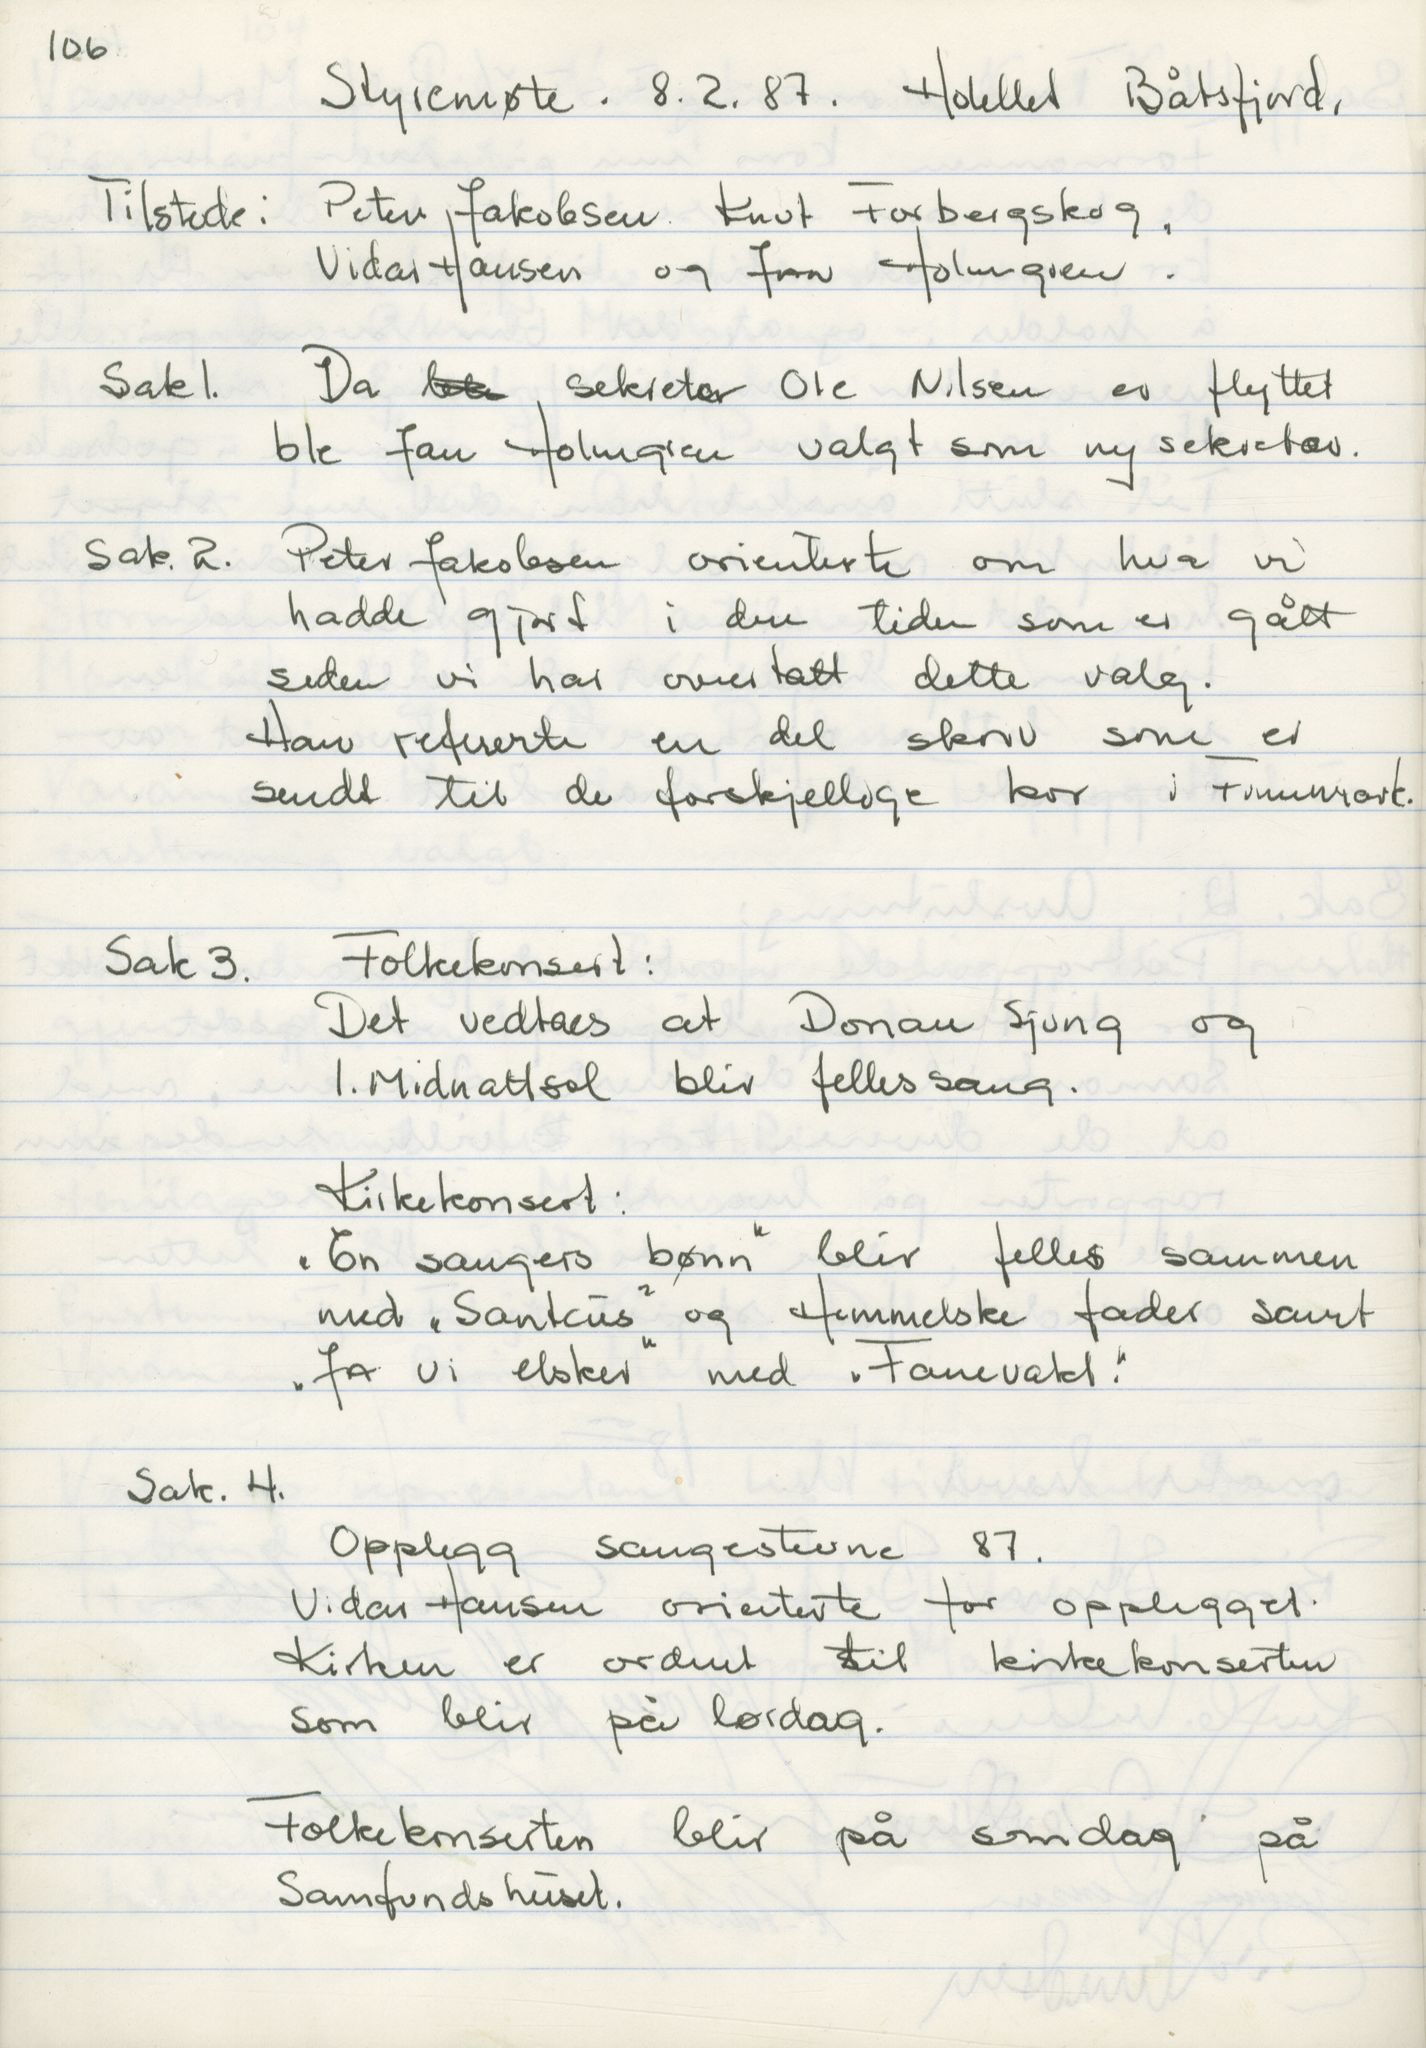 106
Styremøte. 8.2.87. Hotellet Båtsfjord.
Tilstede: Peter Jakobsen Knut Forbergskog,
Vidar Hansen og Jan Holmgren.
Sak 1. Da sekretær Ole Nilsen er flyttet
ble Jan Holmgren valgt som ny sekretær.
Sak. 2. Peter Jakobsen orienterte om hva vi
hadde gjort i den tiden som er gått
siden vi har overtatt dette valg.
Han refererte en del skriv som er
sendt til de forskjellige kor i Finnmark.
Sak 3. Folkekonsert:
Det vedtaes at Donau Sjung og
1. Midnattsol blir fellessang.
Kirkekonsert:
"En sangers bønn" blir felles sammen
med "Santcus" og Himmelske fader samt
"Ja vi elsker" med "Fanevakt."
Sak. 4.
Opplegg sangestevne 87.
Vidar Hansen orienterte for opplegget.
Kirken er ordnet til kirkekonserten
som blir på lørdag.
Folkekonserten blir på søndag på
Samfundshuset.